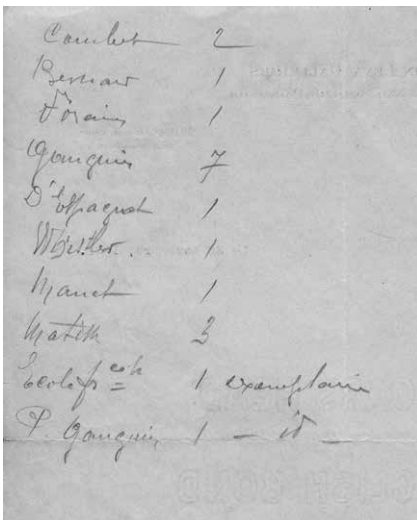 Courbet 2
Bernard 1
Forain 1
Gauguin 7
D'Espagnat 1
Whistler. 1
Manet 1
Matisse 3
Ecole fr 1 exemplaire
P. Gauguin 1 — id —